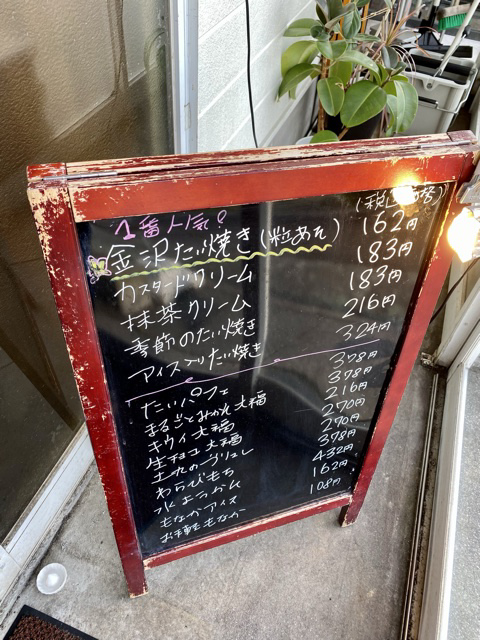 (税込価格)
1番人気!
金沢たい焼き(粒あん) 162円
カスタードクリーム 183円
抹茶クリーム 183円
季節のたい焼き 216円
アイス入りたい焼き 324円
たいパフェ 378円
まるごとみかん大福 378円
キウイ大福 216円
生チョコ大福 270円
のブリュレ 270円
わらびもち 378円
水ようかん 432円
もなかアイス 162円
お手軽もなか 108円